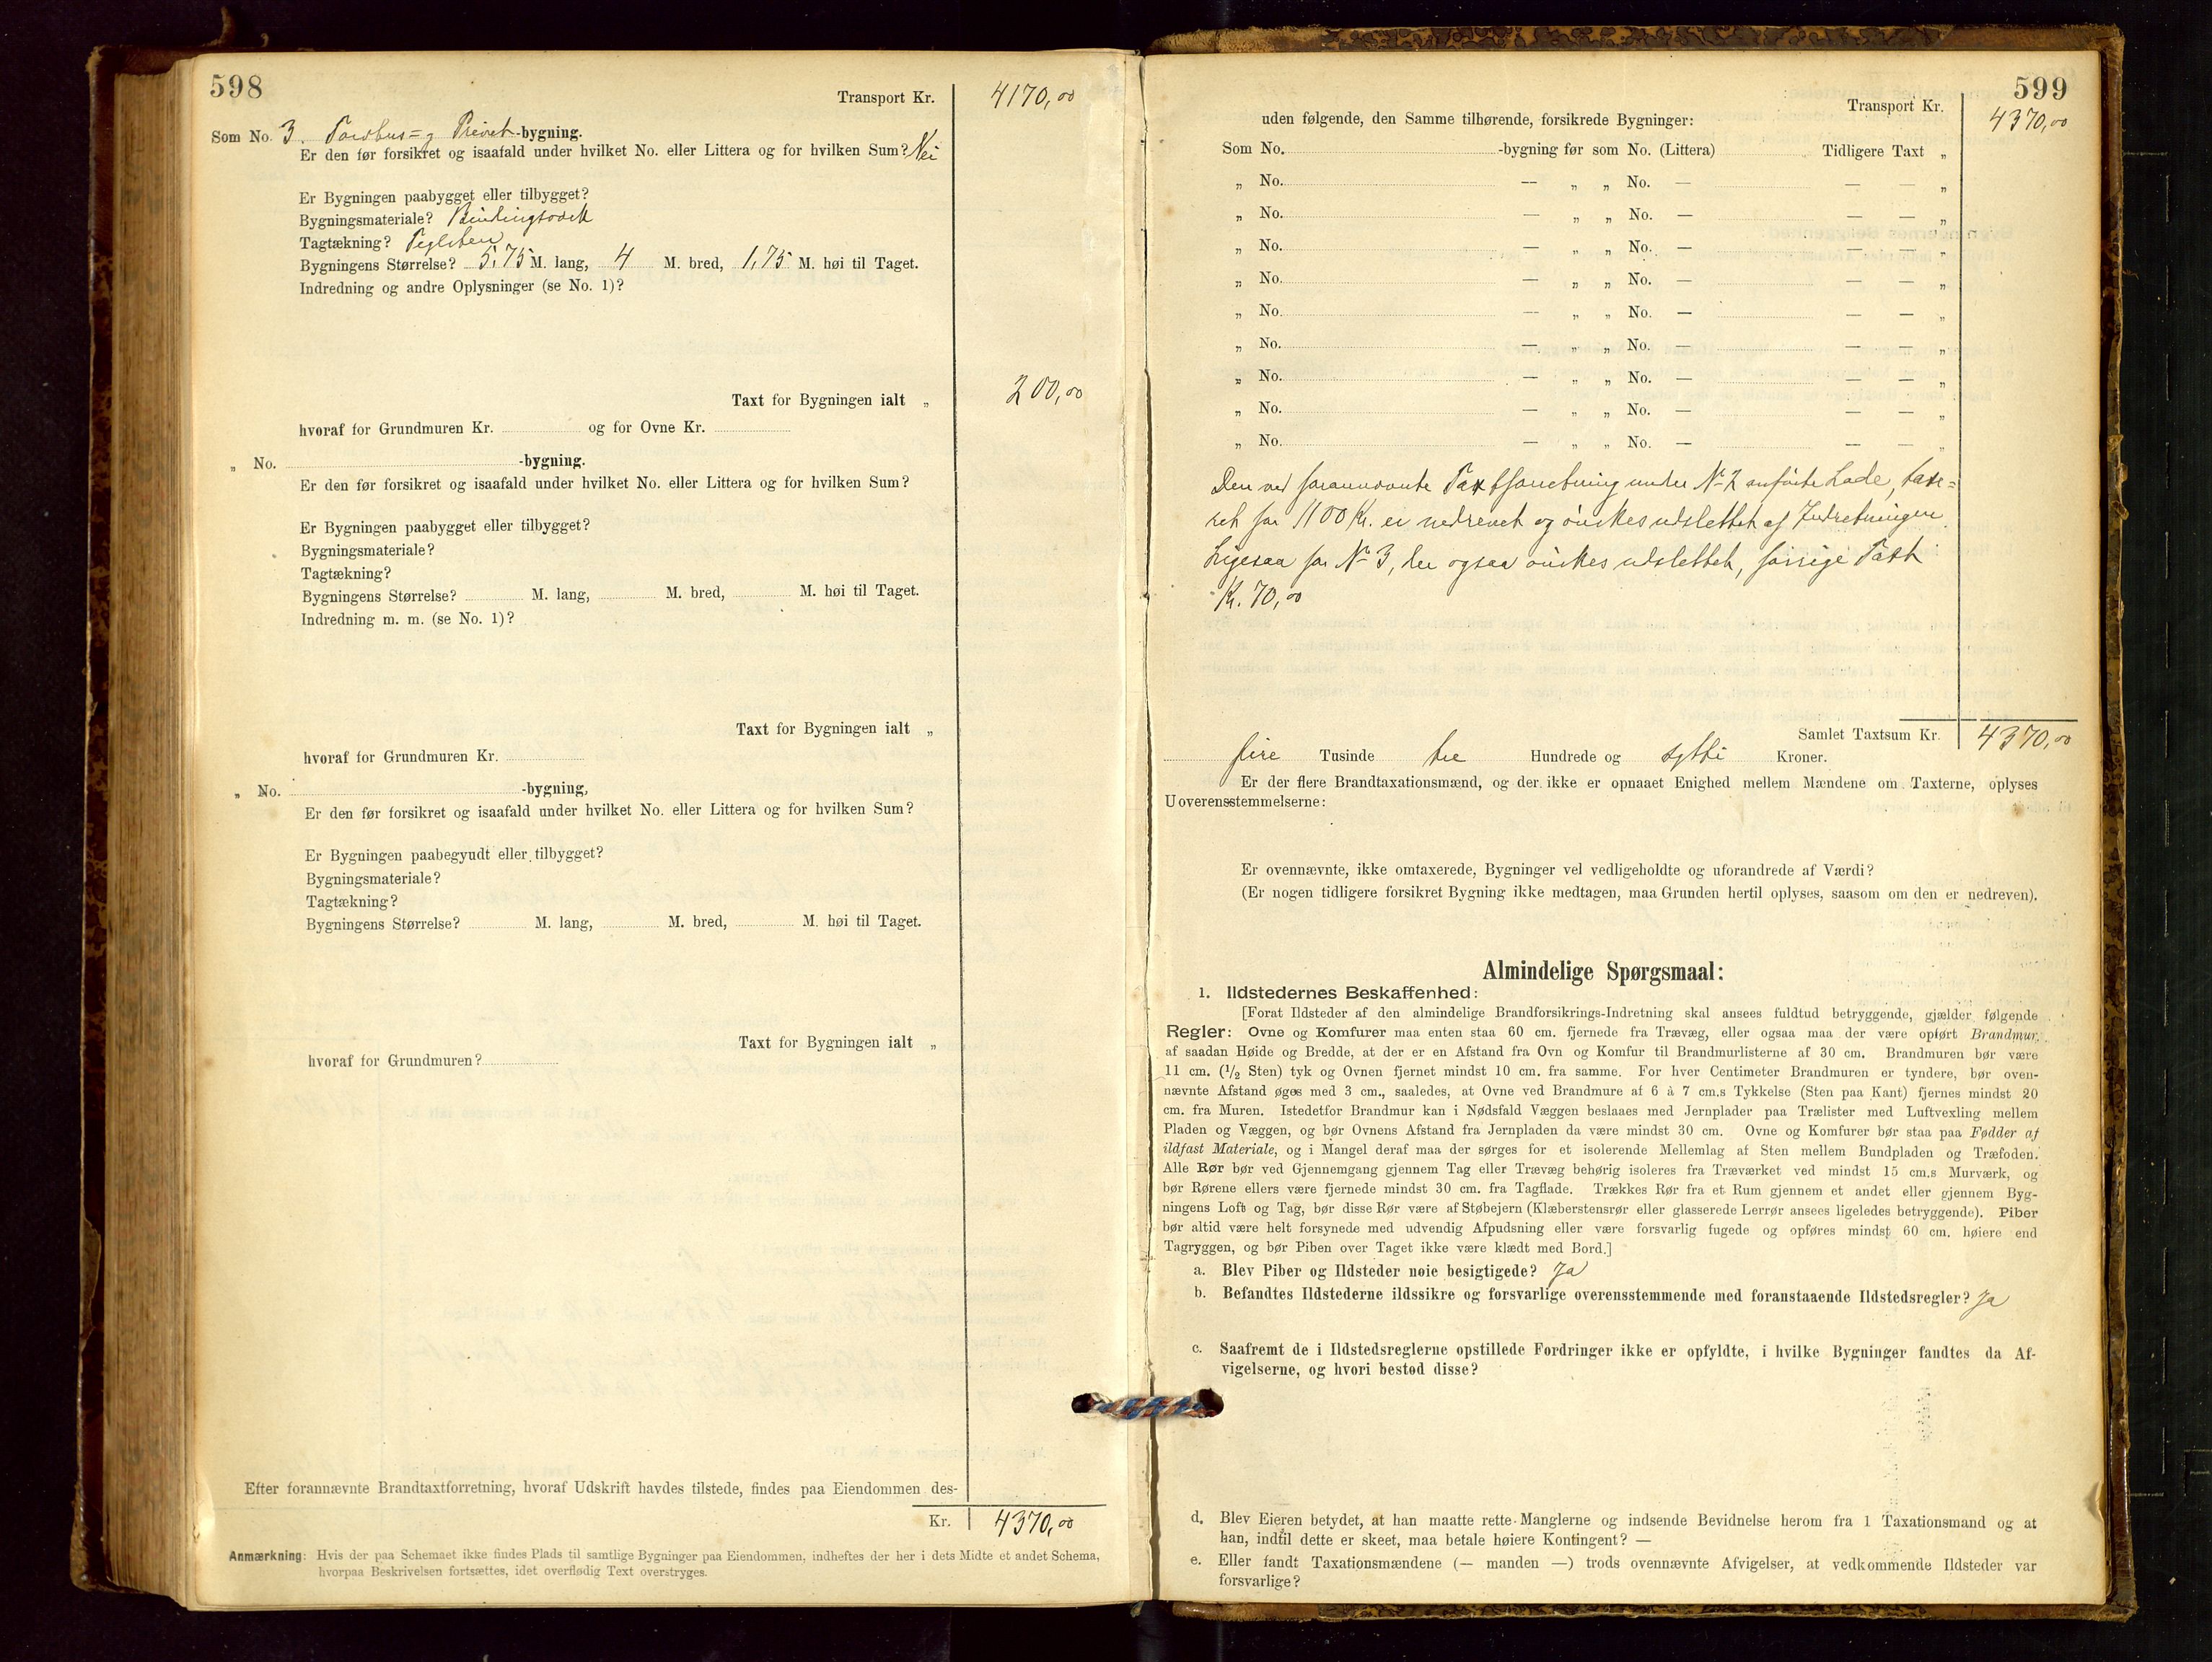 598
Transport Kr. 4170,00
Som No. 3. Torvhus= og Privet-bygning.
Er den før forsikret og isaafald under hvilket No. eller Littera og for hvilken Sum? Nei
Er Bygningen paabygget eller tilbygget?
Bygningsmateriale? Bindingsværk
Tagtækning? Teglsten
Bygningens Størrelse? 5,75 M. lang, 4 M. bred, 1,75 M. høi til Taget.
Indredning og andre Oplysninger (se No. 1)?
Taxt for Bygningen ialt „ 200,00
hvoraf for Grundmuren Kr. og for Ovne Kr.
„ No. -bygning.
Er den før forsikret og isaafald under hvilket No. eller Littera og for hvilken Sum?
Er Bygningen paabygget eller tilbygget?
Bygningsmateriale?
Tagtækning?
Bygningens Størrelse? M. lang, M. bred, M. høi til Taget.
Indredning m. m. (se No. 1)?
Taxt for Bygningen ialt „
hvoraf for Grundmuren Kr.
„ No. -bygning,
Er den før forsikret og isaafald under hvilket No. eller Littera og for hvilken Sum?
Er Bygningen paabegyudt eller tilbygget?
Bygningsmateriale?
Tagtækning?
Bygningens Størrelse? M. lang, M. bred, M. høi til Taget.
Taxt for Bygningen ialt „
hvoraf for Grundmuren?
Efter forannævnte Brandtaxtforretning, hvoraf Udskrift havdes tilstede, findes paa Eiendommen des-
Kr. 4370,00
Anmærkning: Hvis der paa Schemaet ikke findes Plads til samtlige Bygninger paa Eiendommen, indheftes der her i dets Midte et andet Schema,
hvorpaa Beskrivelsen fortsættes, idet overflødig Text overstryges.
599
Transport Kr. 4370,00
uden følgende, den Samme tilhørende, forsikrede Bygninger:
Som No. -bygning før som No. (Littera) Tidligere Taxt „
„ No. — „ „ No. — — — „
„ No. — „ „ No. — — — „
„ No. — „ „ No. — — — „
„ No. — „ „ No. — — — „
„ No. — „ „ No. — — — „
„ No. — „ „ No. — — — „
„ No. — „ „ No. — — — „
„ No. — „ „ No. — — — „
„ No. — „ „ No. — — — „
Den ved forannævnte Taxtforretning under No 2 anførte Lade, taxe=
ret for 1100 Kr. er nedrevet og ønskes udslettet af Indretningen.
Ligesaa for No 3, der ogsaa ønskes udslettet, forrige Taxt
Kr. 70,00
Samlet Taxtsum Kr. 4370,00
fire Tusinde tre Hundrede og sytti Kroner.
Er der flere Brandtaxationsmænd, og der ikke er opnaaet Enighed mellem Mændene om Taxterne, oplyses
Uoverensstemmelserne:
Er ovennævnte, ikke omtaxerede, Bygninger vel vedligeholdte og uforandrede af Værdi?
(Er nogen tidligere forsikret Bygning ikke medtagen, maa Grunden hertil oplyses, saasom om den er nedreven).
Almindelige Spørgsmaal:
1. Ildstedernes Beskaffenhed:
[Forat Ildsteder af den almindelige Brandforsikrings-Indretning skal ansees fuldtud betryggende, gjælder følgende
Regler: Ovne og Komfurer maa enten staa 60 cm. fjernede fra Trævæg, eller ogsaa maa der være opført Brandmur,
af saadan Høide og Bredde, at der er en Afstand fra Ovn og Komfur til Brandmurlisterne af 30 cm. Brandmuren bør være
11 cm. (1/2 Sten) tyk og Ovnen fjernet mindst 10 cm. fra samme. For hver Centimeter Brandmuren er tyndere, bør oven-
nævnte Afstand øges med 3 cm., saaledes, at Ovne ved Brandmure af 6 à 7 cm.s Tykkelse (Sten paa Kant) fjernes mindst 20
cm. fra Muren. Istedetfor Brandmur kan i Nødsfald Væggen beslaaes med Jernplader paa Trælister med Luftvexling mellem
Pladen og Væggen, og bør Ovnens Afstand fra Jernpladen da være mindst 30 cm. Ovne og Komfurer bør staa paa Fødder af
ildfast Materiale, og i Mangel deraf maa der sørges for et isolerende Mellemlag af Sten mellem Bundpladen og Træfoden.
Alle Rør bør ved Gjennemgang gjennem Tag eller Trævæg behørig isoleres fra Træværket ved mindst 15 cm.s Murværk, og
bør Rørene ellers være fjernede mindst 30 cm. fra Tagflade. Trækkes Rør fra et Rum gjennem et andet eller gjennem Byg-
ningens Loft og Tag, bør disse Rør være af Støbejern (Klæberstensrør eller glasserede Lerrør ansees ligeledes betryggende). Piber
bør altid være helt forsynede med udvendig Afpudsning eller være forsvarlig fugede og opføres mindst 60 cm. høiere end
Tagryggen, og bør Piben over Taget ikke være klædt med Bord.]
a. Blev Piber og Ildsteder nøie besigtigede? Ja
b. Befandtes Ildstederne ildssikre og forsvarlige overensstemmende med foranstaaende Ildstedsregler? Ja
c. Saafremt de i Ildstedsreglerne opstillede Fordringer ikke er opfyldte, i hvilke Bygninger fandtes da Af-
vigelserne, og hvori bestod disse?
d. Blev Eieren betydet, at han maatte rette Manglerne og indsende Bevidnelse herom fra 1 Taxationsmand og at
han, indtil dette er skeet, maa betale høiere Kontingent? —
e. Eller fandt Taxationsmændene (— manden —) trods ovennævnte Afvigelser, at vedkommende Ildsteder var
forsvarlige?